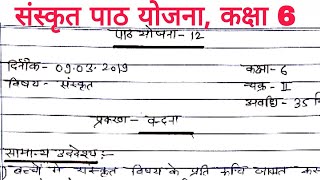 संस्कृत पाठ योजना, कक्षा 6
पाठ योजना-12
दिनाँक- 09.03.2019 कक्षा-6
विषय- संस्कृत चक्र- II
अवधि- 35 मि
प्रकरण -
सामान्य उद्देश्य:-
बच्चों में संस्कृत विषय के प्रति रूचि जाग्रत कर